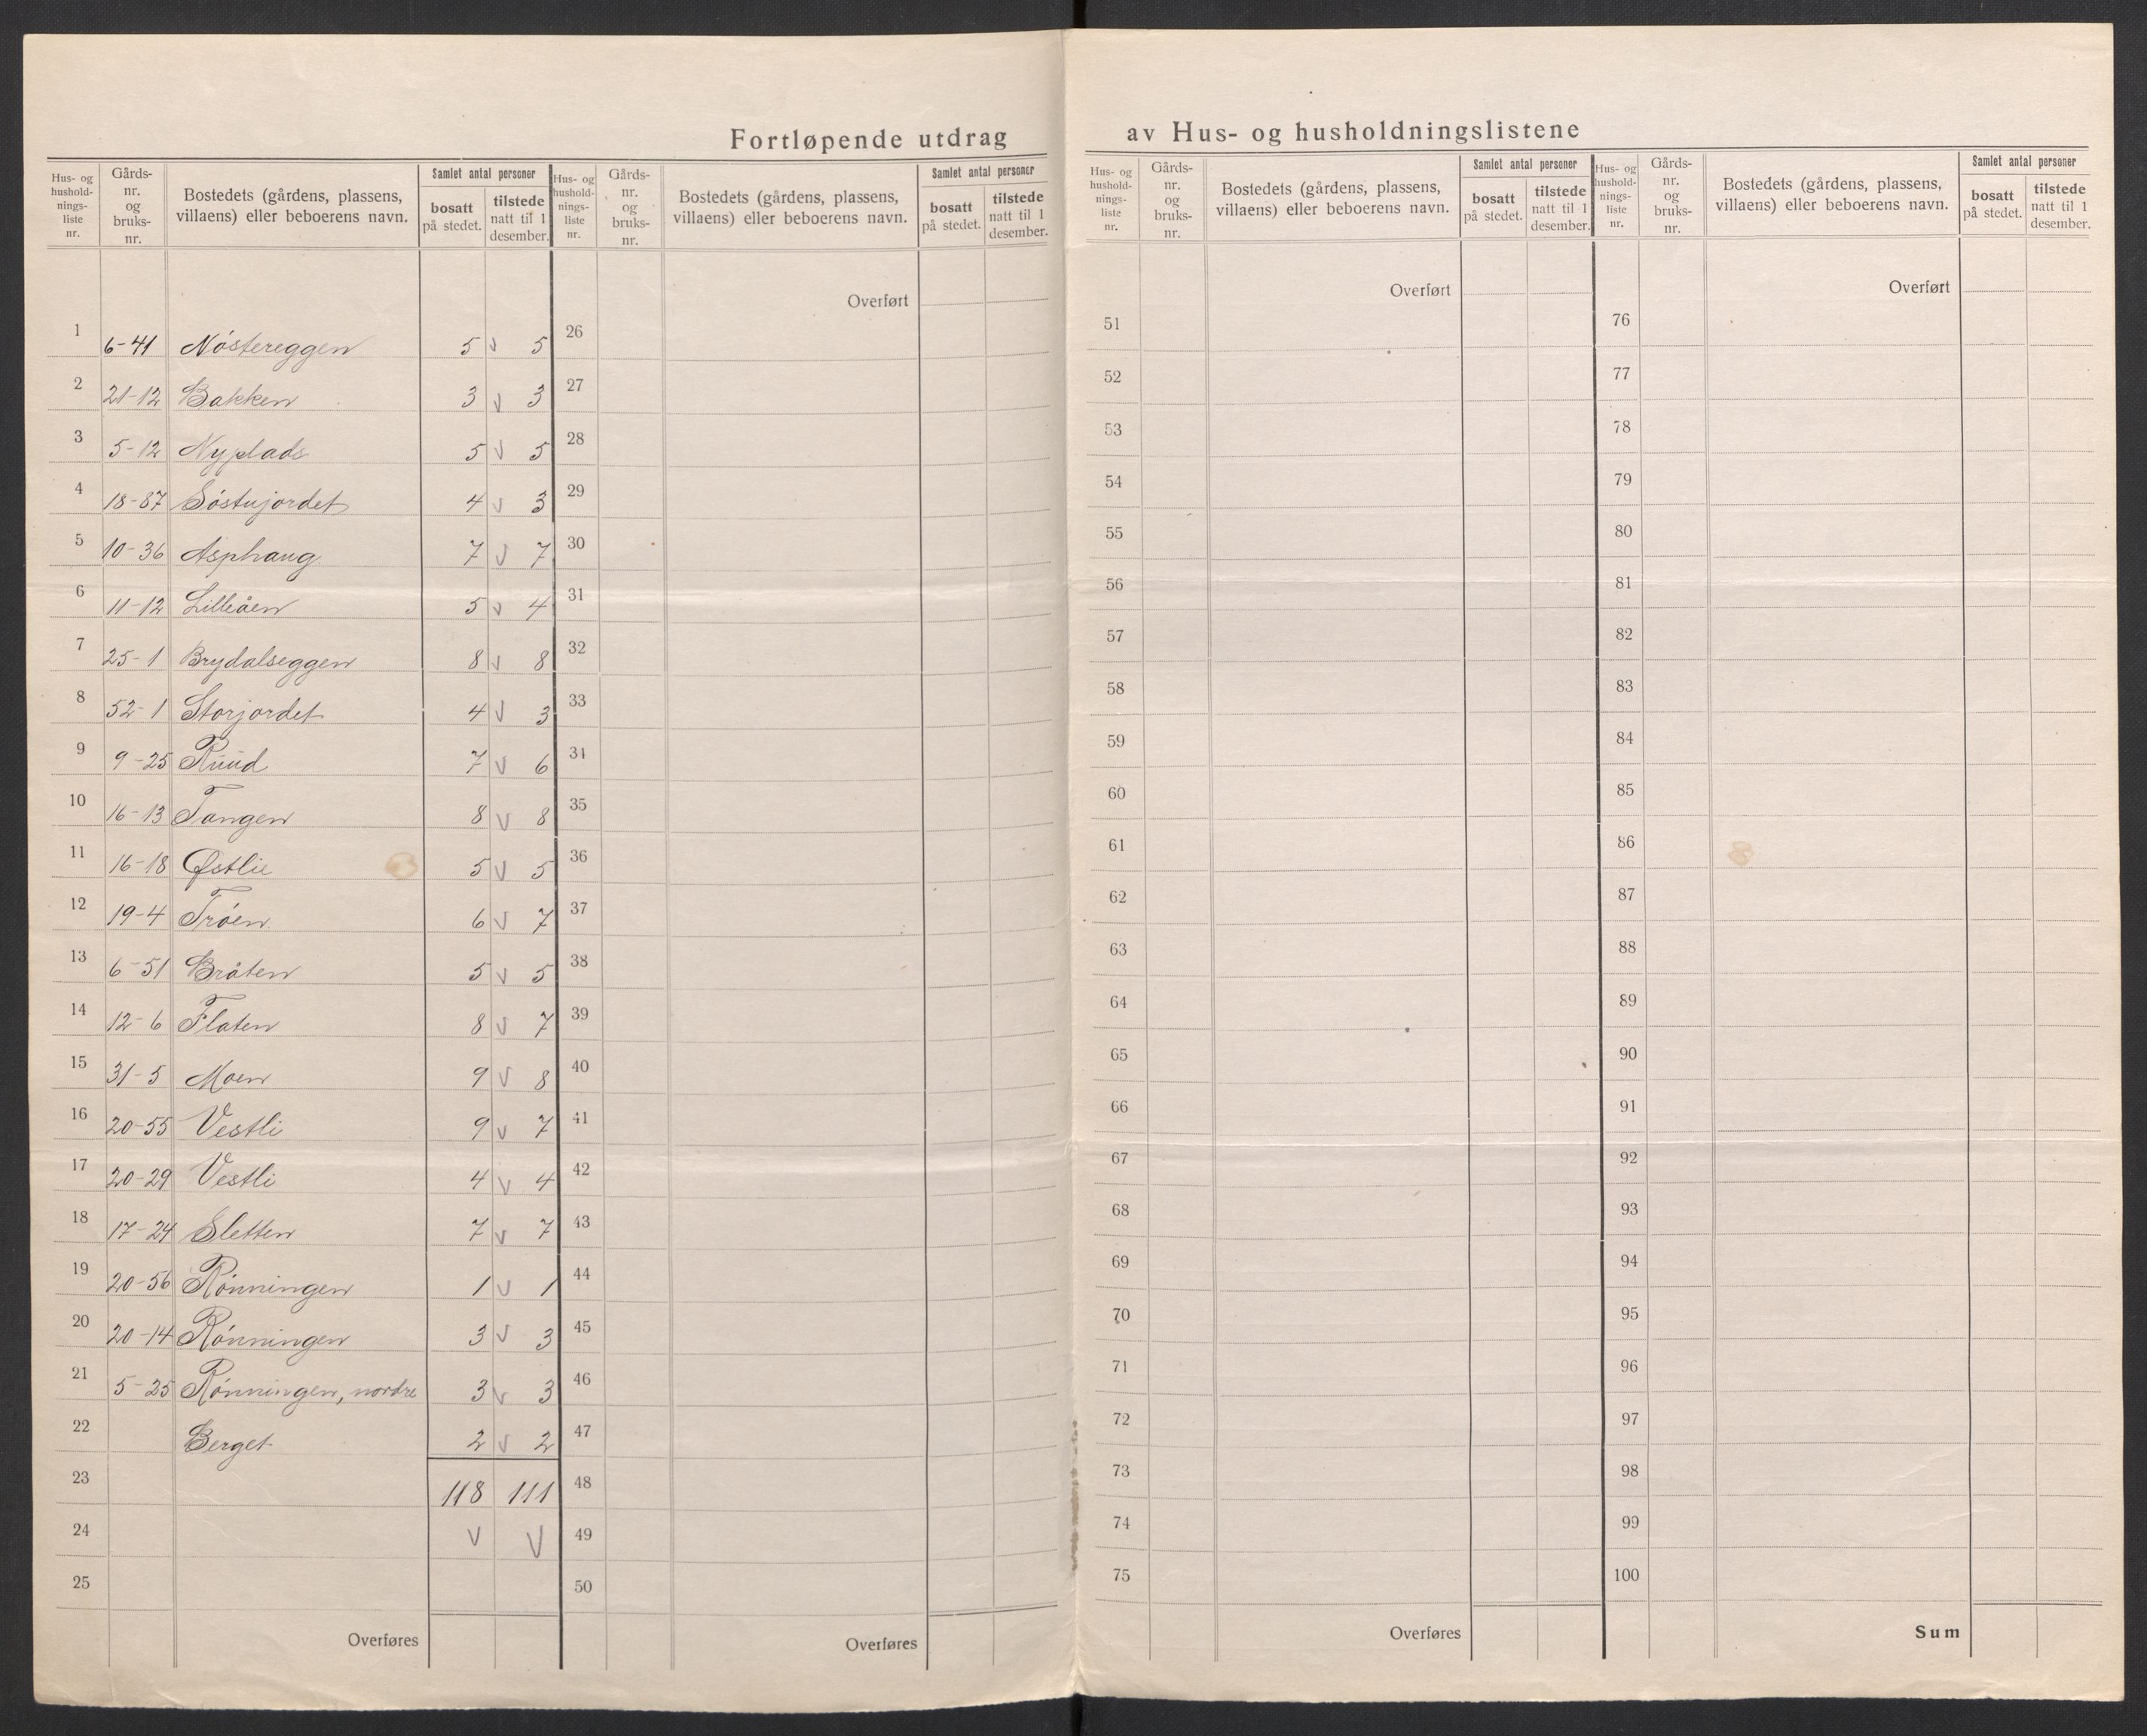 Fortløpende utdrag av Hus- og husholdningslistene
Hus- og hushold-nings-liste nr. Gårds-nr. og bruks-nr. Bostedets (gårdens, plassens, villaens) eller beboerens navn. Samlet antal personer bosatt på stedet. tilstede natt til 1 desember.
1 6-41 Nóstereggen 5 v 5
2 21-12 Bakken 3 v 3
3 5-12 Nyplads 5 v 5
4 18-87 Sóstujordet 4 v 3
5 10-36 Asphaug 7 v 7
6 11-12 Lilleåen 5 v 4
7 25-1 Brydalseggen 8 v 8
8 52-1 Storjordet 4 v 3
9 9-25 Ruud 7 v 6
10 16-13 Tangen 8 v 8
11 16-18 Østlie 5 v 5
12 19-4 Tróen 6 v 7
13 6-51 Bråten 5 v 5
14 12-6 Flaten 8 v 7
15 31-5 Moen 9 v 8
16 20-55 Vestli 9 v 7
17 20-29 Vestli 4 v 4
18 17-24 Sletten 7 v 7
19 20-56 Rónningen 1 v 1
20 20-14 Rónningen 3 v 3
21 5-25 Rónningen, nordre 3 v 3
22 Berget 2 v 2
23 118 111
24 v v
25
Overføres
Hus- og hushold-nings-liste nr. Gårds-nr. og bruks-nr. Bostedets (gårdens, plassens, villaens) eller beboerens navn. Samlet antal personer bosatt på stedet. tilstede natt til 1 desember.
Overført
26
27
28
29
30
31
32
33
34
35
36
37
38
39
40
41
42
43
44
45
46
47
48
49
50
Overføres
Hus- og hushold-nings-liste nr. Gårds-nr. og bruks-nr. Bostedets (gårdens, plassens, villaens) eller beboerens navn. Samlet antal personer bosatt på stedet. tilstede natt til 1 desember.
Overført
51
52
53
54
55
56
57
58
59
60
61
62
63
64
65
66
67
68
69
70
71
72
73
74
75
Overføres
Hus- og hushold-nings-liste nr. Gårds-nr. og bruks-nr. Bostedets (gårdens, plassens, villaens) eller beboerens navn. Samlet antal personer bosatt på stedet. tilstede natt til 1 desember.
Overført
76
77
78
79
80
81
82
83
84
85
86
87
88
89
90
91
92
93
94
95
96
97
98
99
100
Sum